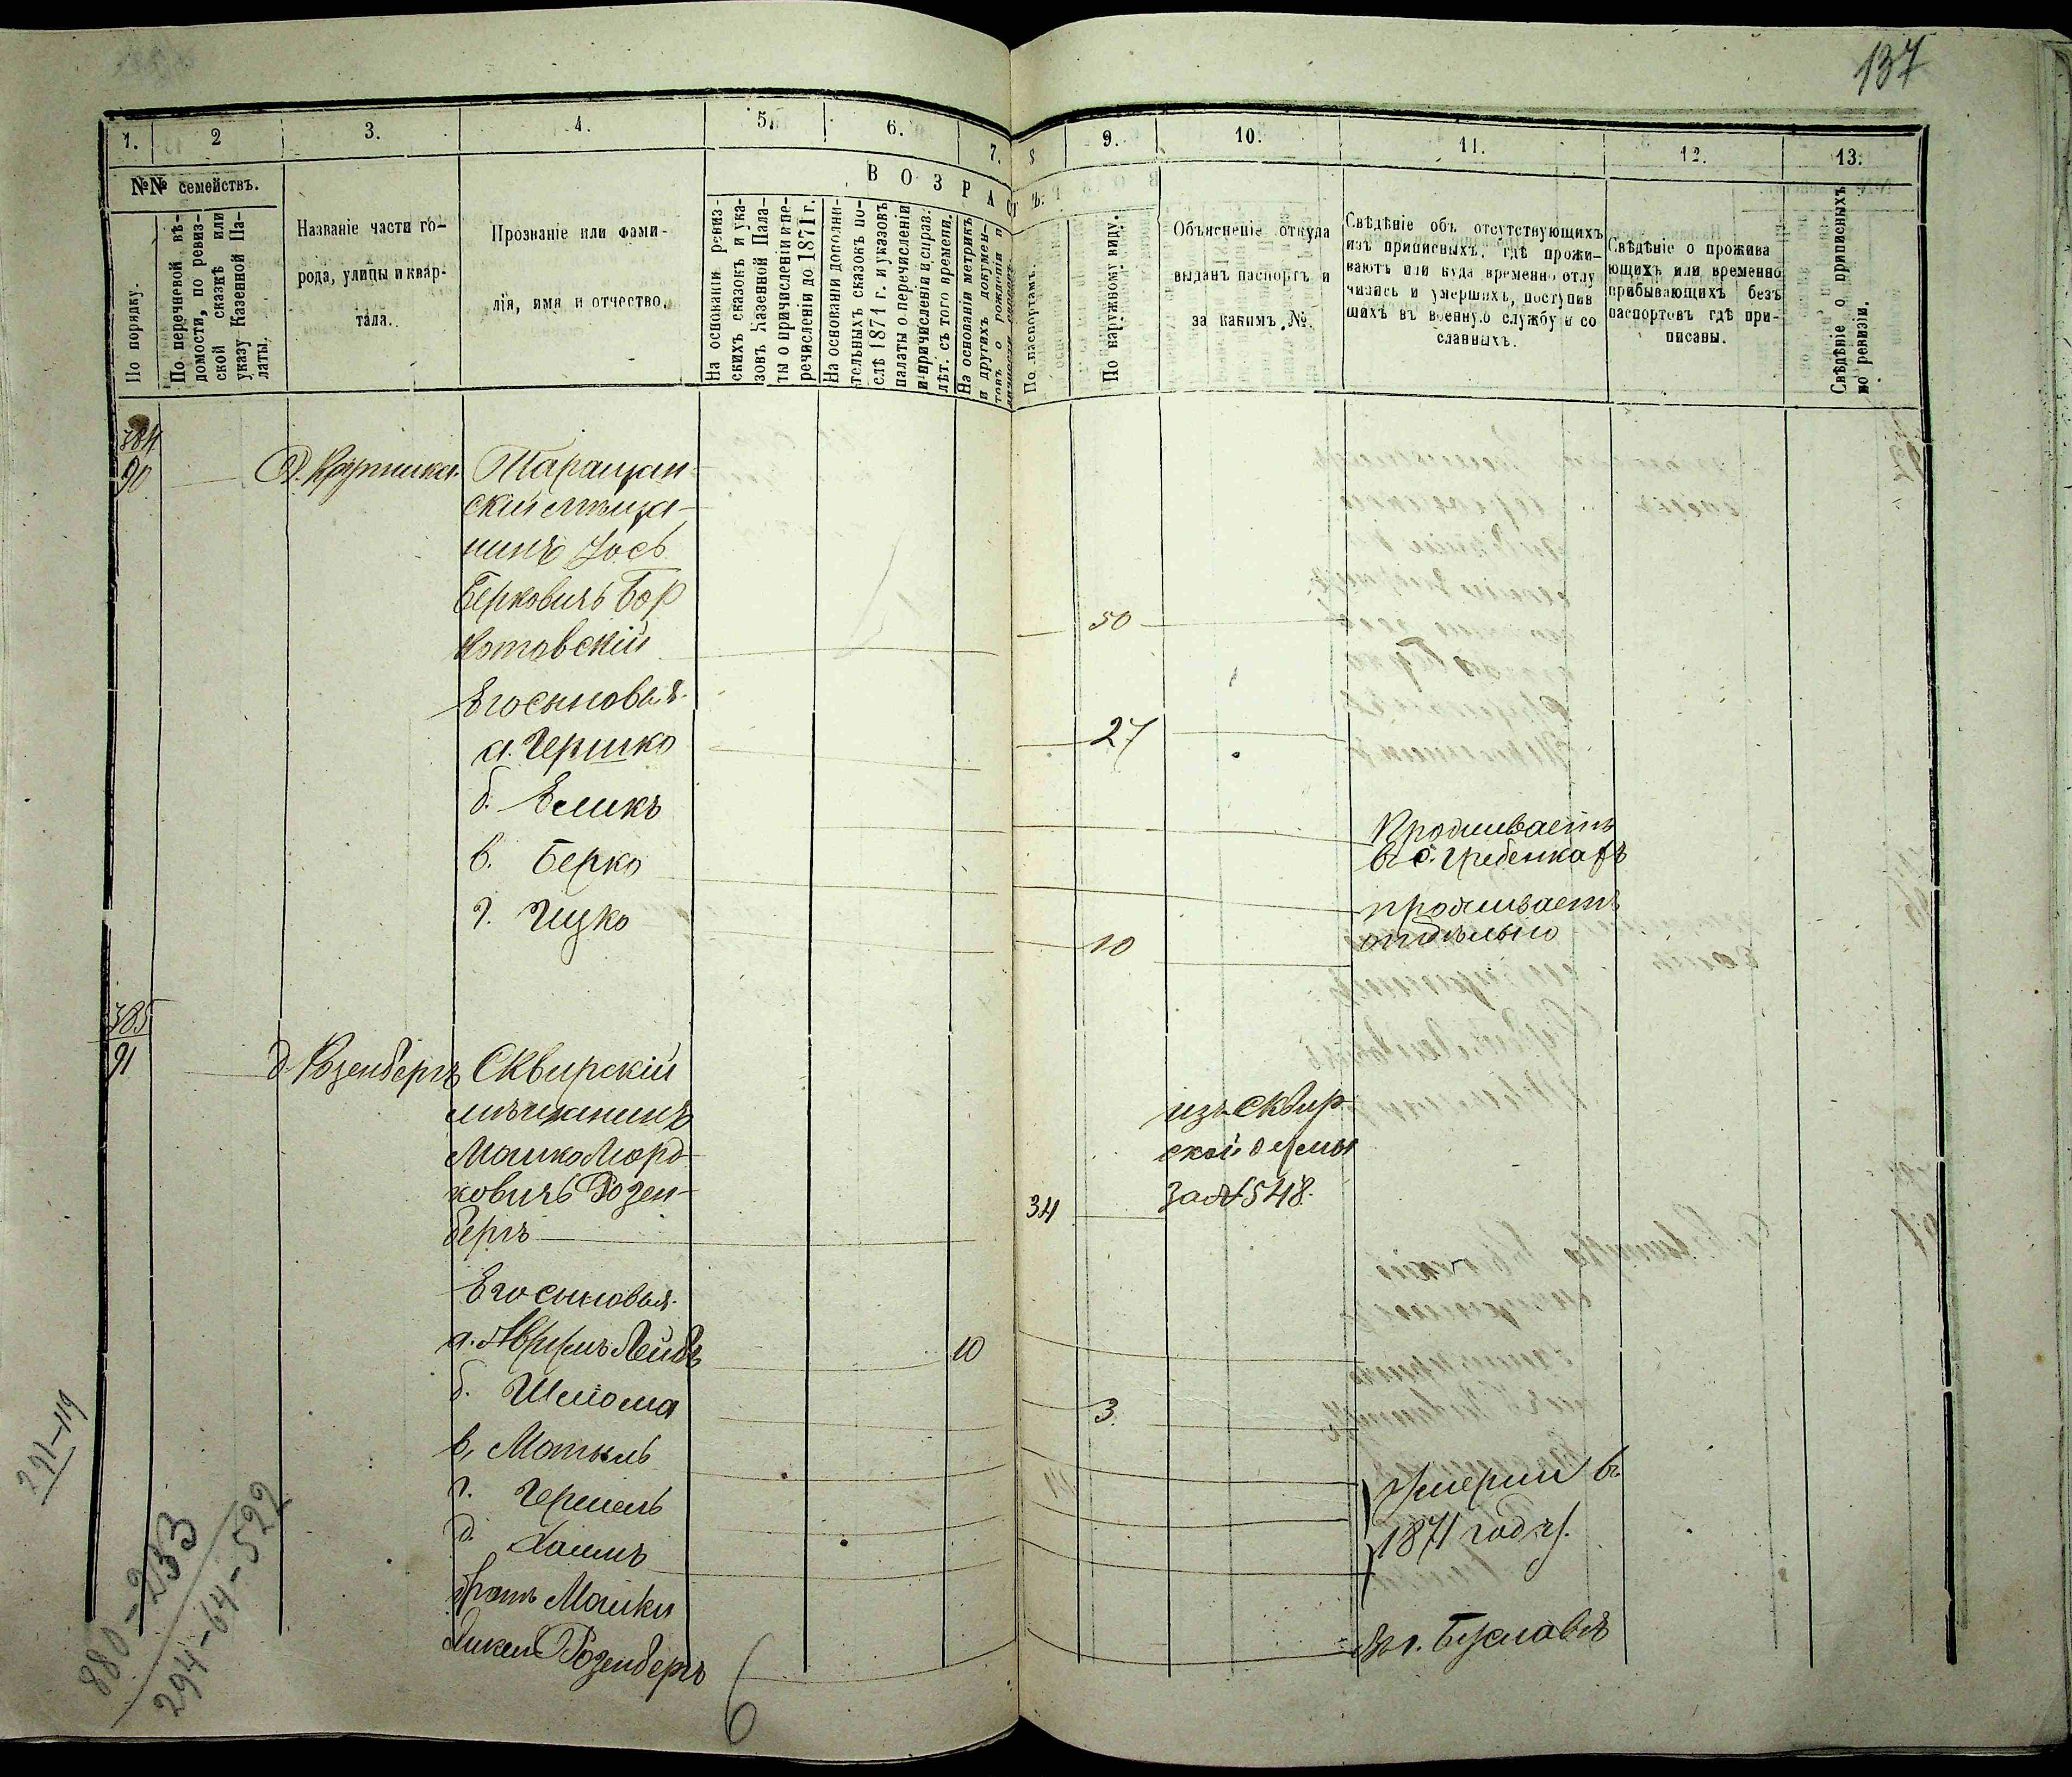 137
1.
2
3.
4.
5.
6.
7.
8
9.
10.
11.
12.
13.
№№ семействъ.
По порядку.
По перечневой вѣ-
домости, по ревиз-
ской сказкѣ или
указу Казенной Па-
латы.
Названіе части го-
рода, улицы и квар-
тала.
Прозваніе или фами-
лія, имя и отчество.
ВОЗРАСТЪ.
На основаніи ревиз-
скихъ сказокъ и ука-
зовъ Казенной Пала-
ты о причисленіи и пе-
речисленіи до 1871 г.
На основаніи дополни-
тельныхъ сказокъ по-
слѣ 1871 г. и указовъ
палаты о перечисленіи
и причисленіи и справ.
лѣт. съ того времени.
На основаніи метрикъ
и другихъ докумен-
товъ о рожденіи и
По паспортамъ.
По наружному виду.
Объясненіе откуда
выданъ паспортъ и
за какимъ №.
Свѣдѣніе объ отсутствующихъ
изъ приписныхъ, гдѣ прожи-
ваютъ или куда временно отлу
чились и умершихъ, поступив
шихъ въ военную службу и со
сланныхъ.
Свѣдѣніе о прожива
ющихъ или временно
прибывающихъ безъ
паспортовъ гдѣ при-
писаны.
Свѣдѣніе о приписныхъ
по ревизіи.
384
90
Таращан-
скій мѣща-
нинъ Іось
Берковичъ Бор
котовскій
50
Его сыновья
а. Гершко
27
б. Еликъ
Проживаетъ
въ с. Гребенкахъ
в. Берко
проживаетъ
отдѣльно
г. Ицко
10
385
91
д. Розенбергъ
Сквирскій
мѣщанинъ
Мошко Морд-
ковичъ Розен-
бергъ
34
изъ Сквир-
ской думы
за № 548.
Его сыновья
а. Аврумъ Лейбъ
10
б. Шлома
3.
в. Мотель
г. Гершель
д. Хаимъ
Умерли въ
1871 году.
братъ Мошки
Розенбергъ
въ г. Богуславѣ
6
291-119
880-233
294-64-522